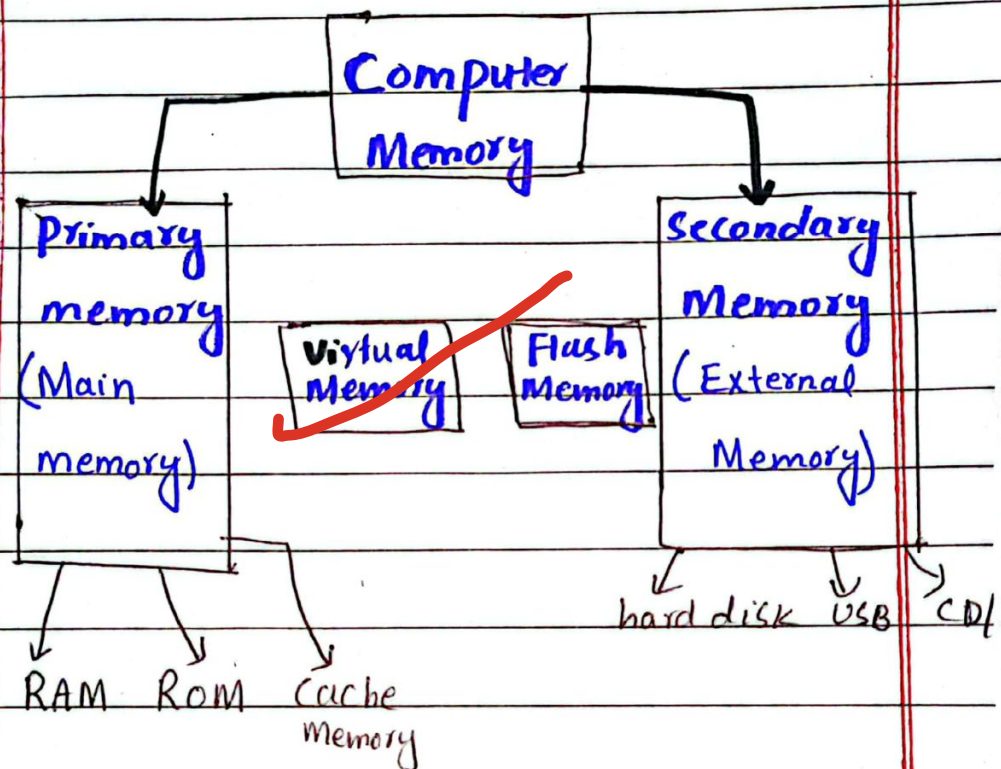 Computer
Memory
Primary
memory
(Main
memory)
Virtual
Memory
Flash
Memory
Secondary
Memory
(External
Memory)
RAM
ROM
Cache
Memory
hard disk
USB
CD/